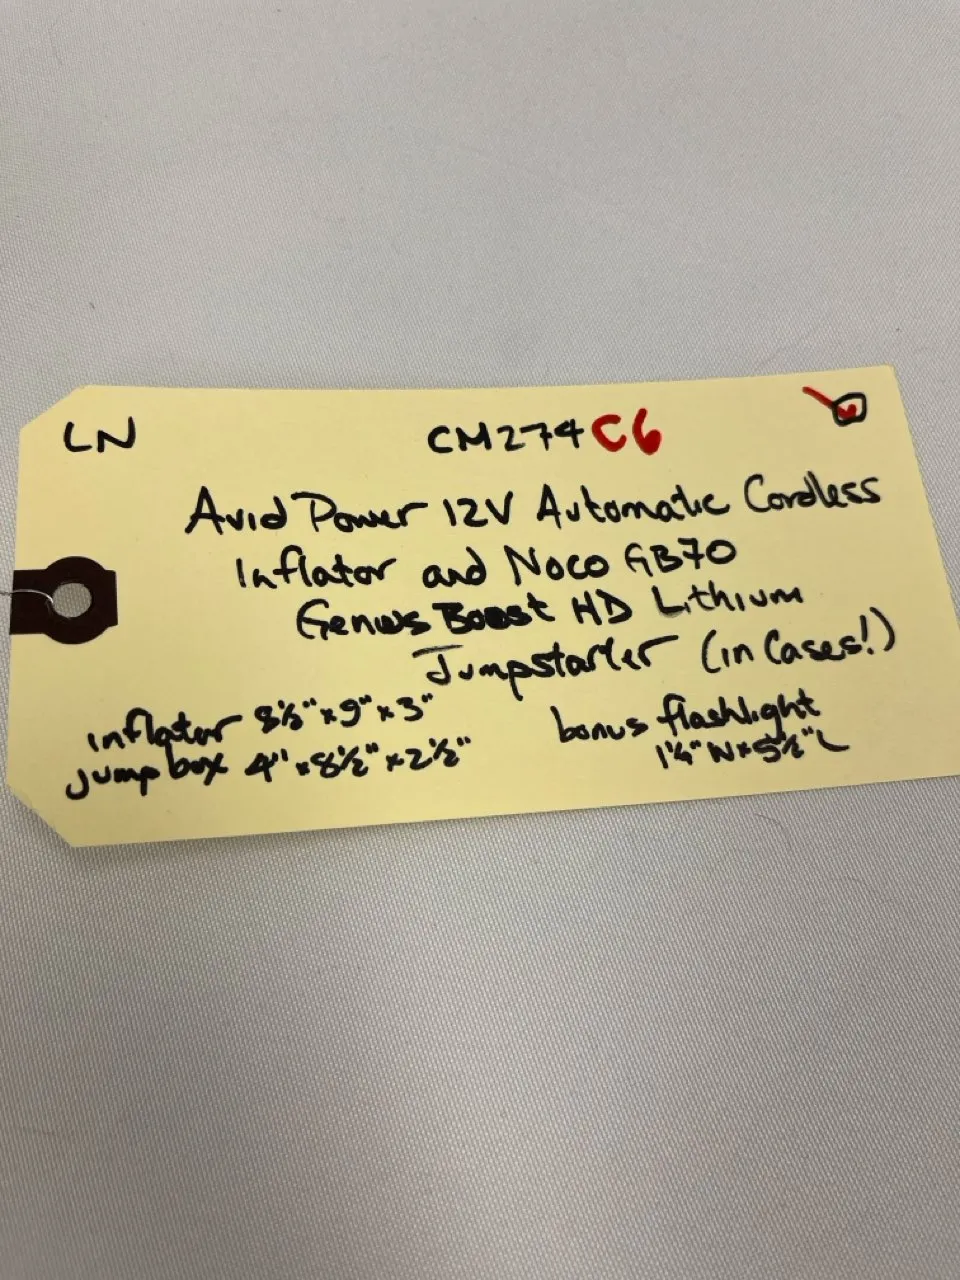 LN CM274 C6
Avid Power 12V Automatic Cordless
Inflator and Noco GB70
Genius Boost HD Lithium
Jumpstarter (in Cases!)
inflator 8½" x 9" x 3"
jump box 4" x 8½" x 2½"
bonus flashlight
1¼" W x 5½" L